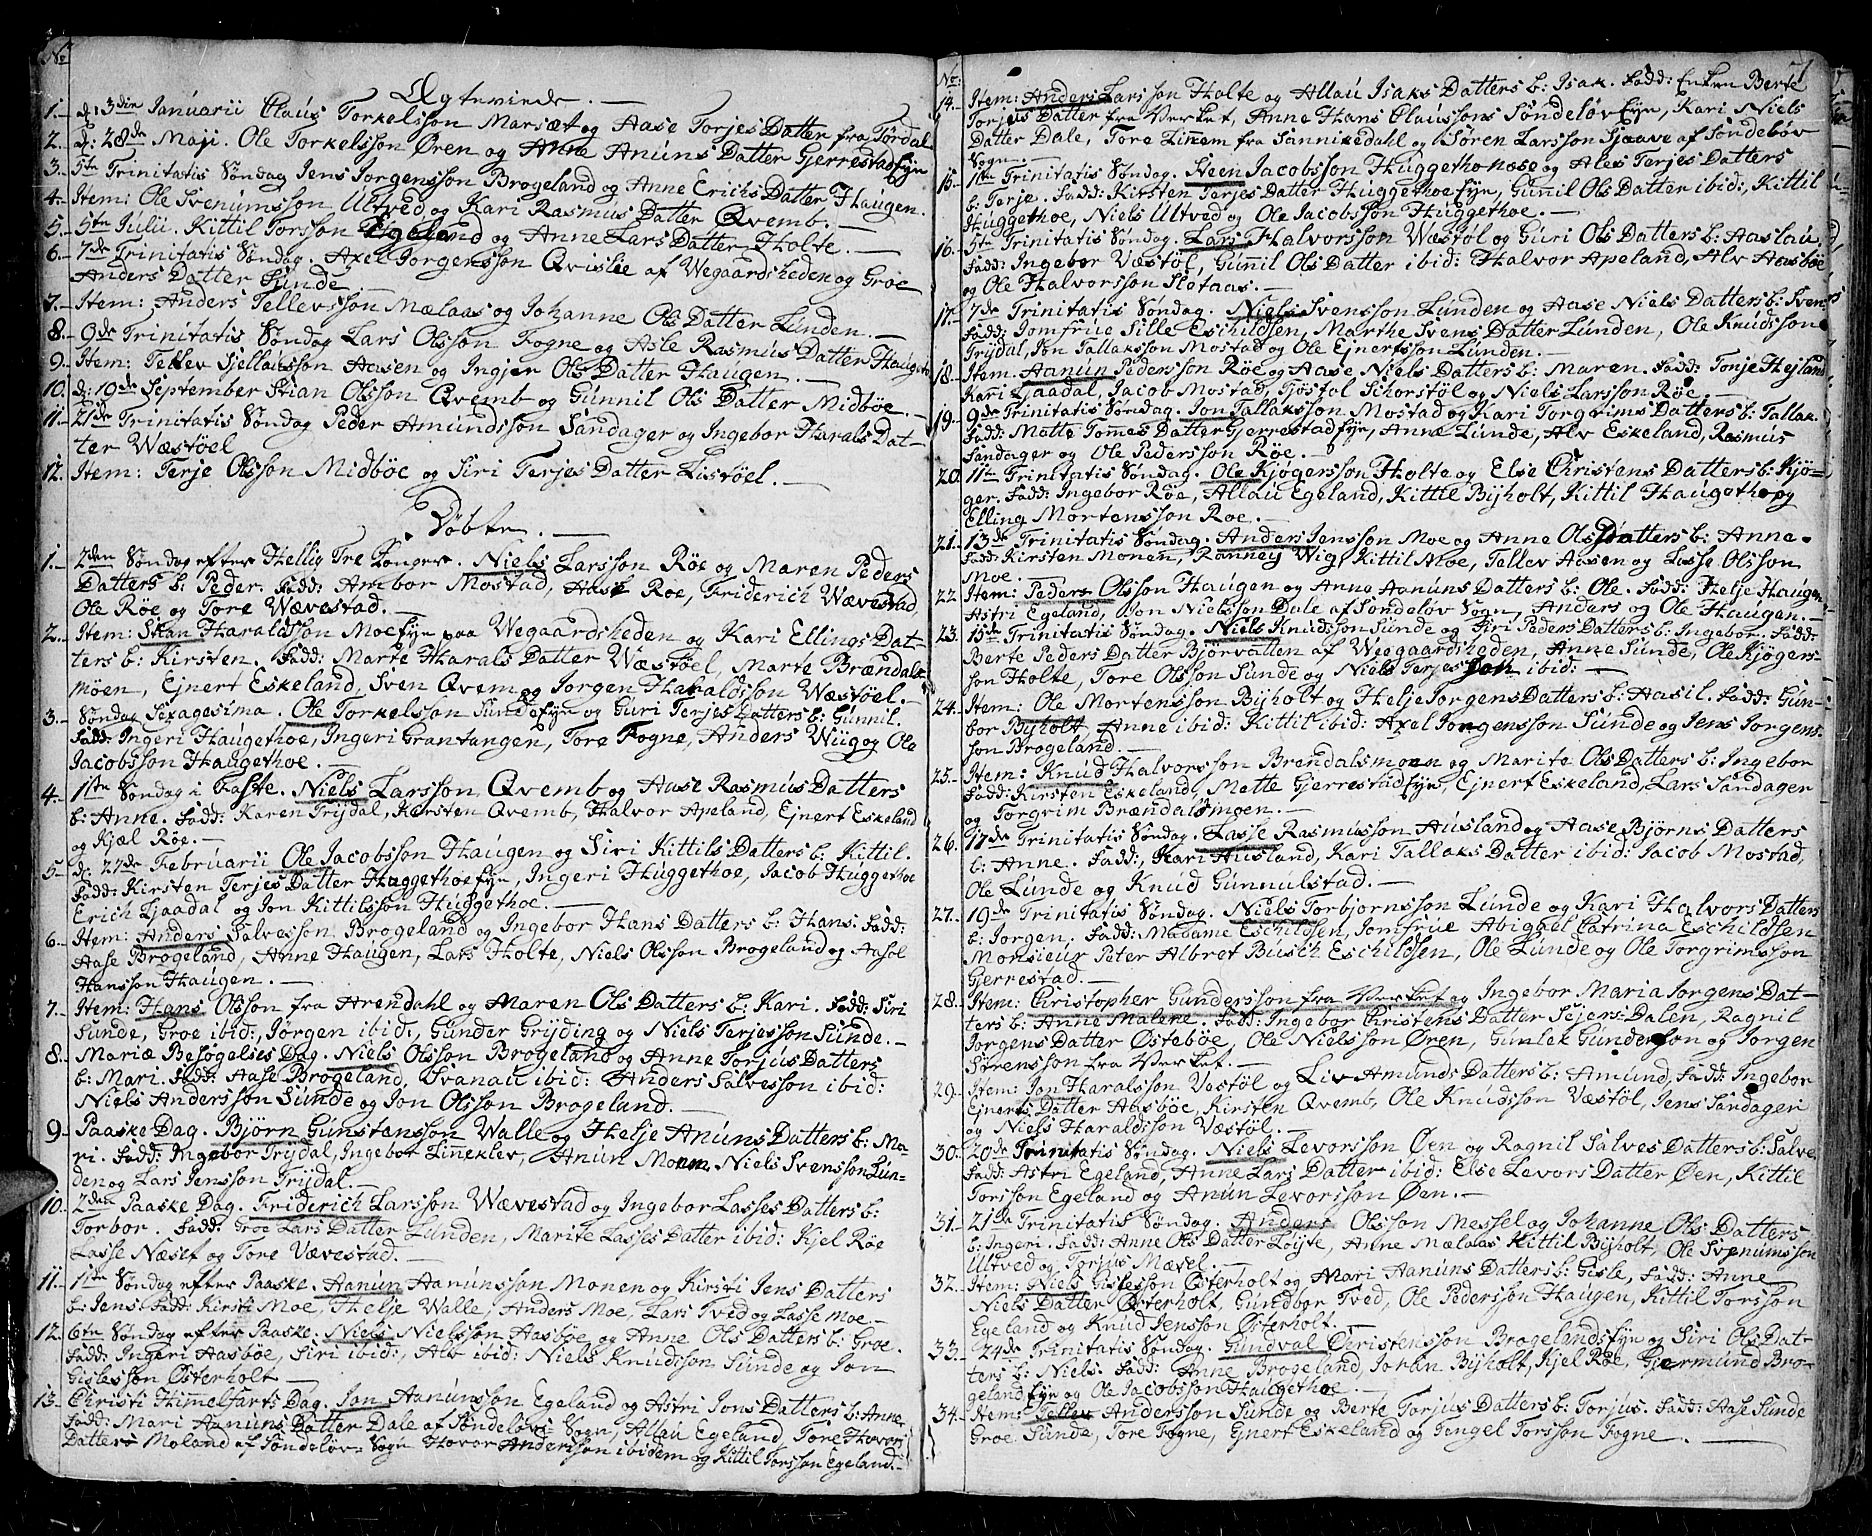 No
Ægteviede. —
1. — d: 3die Januarii Claus Torkelsson Marsæt og Aase Torjes Datter fra Tørdal
2. — d: 28de Maji. Ole Torkelsson Øren og Anne Anuns Datter Gerrestadfyn
3. — 5te Trinitatis Søndag Jens Jorgensson Brogeland og Anne Erichs Datter Haugen.
4. — Item: Ole Svenumsson Ultved og Kari Rasmus Datter Qvemb. —
5. — 5te Julii. Kittil Torsson Egeland og Anne Lars Datter Holte. —
6. — 7de Trinitatis Søndag. Axel Jorgensson Qvislie af Wegaardsheden og Groe
Anders Datter Sunde —
7. — Item: Anders Tellevsson Mælaas og Johanne Ols Datter Lunden. —
8. — 9de Trinitatis Søndag Lars Olsson Fogne og Asle Rasmus Datter Haugen
9. — Item: Tellev Sjellausson Aasen og Ingjer Ols Datter Haugen. —
10. d: 19de September Stian Olsson Qvemb og Gunnil Ols Datter Midbøe. —
11. — 21de Trinitatis Søndag Peder Amundsson Sandager og Ingebor Harals Dat-
ter Wæstøel
12. Item: Terje Olsson Midbøe og Siri Terjes Datter Listøel. —
Døbte. —
1. — 2den Søndag efter Hellig Tre Konger. Niels Larsson Røe og Maren Peders
Datters b: Peder. Fadd: Ambor Mostad, Aase Roe, Friderich Wævestad,
Ole Røe og Tore Wævestad. —
2. — Item: Stian Haraldsson Moefyn paa Wegaardsheden og Kari Ellings Dat-
ters b: Kirsten. Fadd: Marte Harals Datter Wæstøel, Marte Brændals
moen, Ejnert Eskeland, Sven Qvem og Jorgen Haraldsson Wæstøel. —
3. — Søndag Sexagesima. Ole Torkelsson Sundefyn og Guri Terjes Datters b: Gunnil.
Fadd: Ingeri Haugethoe, Ingeri Grantangen, Tore Fogne, Anders Wiig og Ole
Jacobsson Haugethoe. —
4. — 1ste Søndag i Faste. Niels Larsson Qvemb og Aase Rasmus Datters
b: Anne. Fadd: Karen Trydal, Kirsten Qvemb, Halvor Apeland, Ejnert Eskeland
og Kjæl Røe. —
5. — d: 22de Februarii Ole Jacobsson Haugen og Siri Kittils Datters b: Kittil.
Fadd: Kirsten Terjes Datter Huggethoefyn, Ingeri Huggethoe, Jacob Huggethoe
Erich Ljaadal og Jon Kittilsson Huggethoe. —
6. — Item: Anders Salvesson Brogeland og Ingebor Hans Datters b: Hans. Fadd:
Aase Brogeland, Anne Haugen, Lars Holte, Niels Olsson Brogeland og Aasol
Hansson Haugen. —
7. — Item: Hans Olsson fra Arendahl og Maren Ols Datters b: Kari. Fadd: Siri
Sunde, Groe ibid:, Jorgen ibid:, Gundar Gryding og Niels Terjesson Sunde. —
8. — Mariæ Besøgelses Dag. Niels Olsson Brogeland og Anne Torjus Datters
b: Mari. Fadd: Aase Brogeland, Svanau ibid: Anders Salvesson ibid:
Niels Andersson Sunde og Jon Olsson Brogeland. —
9. — Paaske Dag. Bjørn Gunstensson Walle og Helje Anuns Datters b: Ma-
ri. Fadd: Ingebor Trydal, Ingebor Linekløv, Anun Monen, Niels Svensson Lun-
den og Lars Jensson Trydal. —
10. — 2den Paaske Dag. Friderich Larsson Wævestad og Ingebor Lasses Datters b:
Torbor. Fadd: Groe Lars Datter Lunden, Marite Lasses Datter ibid: Kjel Røe
Lasse Næset og Tore Vævestad. —
11. — 1ste Søndag efter Paaske. Aanun Aanunsson Monen og Kirsti Jens Datters
b: Jens Fadd: Kirsti Moe, Helje Walle, Anders Moe, Lars Tved og Lasse Moe. —
12. — 6te Søndag efter Paaske. Niels Nielsson Aasbøe og Anne Ols Datters b: Groe.
Fadd: Ingeri Aasbøe, Siri ibid:, Alv ibid: Niels Knudsson Sunde og Jon
Gislesson Østerholt —
13. — Christi Himmelfarts Dag. Jon Aanunsson Egeland og Astri Jons Datters b: Anne
Fadd: Mari Aanuns Datter Dale af Søndeløv Sogn, Allau Egeland, Tore Hovors
Datter Moland af Søndeløv Sogn Hovor Andersson ibidem og Kittil Torsson Egeland. —
No:
7
14. — Item: Anders Larsson Holte og Allau Isaks Datters b: Isak. Fadd: Enken Berte
Torjes Datter fra Verket, Anne Hans Claussons Søndeløv Eyn, Kari Niels
Datter Dale, Tore Linem fra Sannikedahl og Søren Larsson Sjaave af Søndeløv
Sogn. —
15. — 11te Trinitatis Søndag. Steen Jacobsson Huggethonose og Ales Terjes Datters
b: Terje. Fadd: Kirsten Terjes Datter Huggethoefyn, Gunnil Ols Datter ibid:, Kittil
Huggethoe, Niels Ultved og Ole Jacobsson Huggethoe. —
16. — 5te Trinitatis Søndag. Lars Halvorsson Wæstøl og Guri Ols Datters b: Aaslau,
Fadd: Ingebor Væstøl, Gunnil Ols Datter ibid: Halvor Apeland, Alv Aasbøe
og Ole Halvorsson Slotaas. —
17. — 7de Trinitatis Søndag. Niels Svensson Lunden og Aase Niels Datters b: Sven
Fadd: Jomfrue Sille Eschildsen, Marthe Svens Datter Lunden, Ole Knudsson
Trydal, Jon Tallaksson Mostad og Ole Ejnertsson Lunden. —
18. — Item. Aanun Pedersson Røe og Aase Niels Datters b: Maren. Fadd: Tonje Hejland
Kari Ljaadal, Jacob Mostad, Tjøstol Schorstøl og Niels Larsson Røe. —
19. — 9de Trinitatis Søndag. Jon Tallaksson Mostad og Kari Torgrims Datters b: Tallak.
Fadd: Mette Tommes Datter Gjerrestadfyn, Anne Lunde, Alv Eskeland, Rasmus
Sandager og Ole Pedersson Røe. —
20. 11te Trinitatis Søndag. Ole Kjøgersson Holte og Else Christens Datters b: Kjø-
ger. Fadd: Ingebor Røe, Allau Egeland, Kittil Byholt, Kittil Haugetho og
Elling Mortensson Roe. —
21. — 13de Trinitatis Søndag. Anders Jensson Moe og Anne Ols Datters b: Anne.
Fadd: Kirsten Monen, Ronney Wig, Kittil Moe, Tellev Aasen og Lasse Olsson
Moe. —
22. Item: Peder Olsson Haugen og Anne Aanuns Datters b: Ole. Fadd: Helje Haugen,
Astri Egeland, Jon Nielsson Dale af Søndeløv Sogn, Anders og Ole Haugen. —
23. — 15de Trinitatis Søndag. Niels Knudsson Sunde og Siri Peders Datters b: Ingebor. Fadd:
Berte Peders Datter Bjørvatten af Weggaardsheden, Anne Sunde, Ole Kjøgers-
son Holte, Tore Olsson Sunde og Niels Terjesson ibid: —
24. — Item: Ole Mortensson Byholt og Helje Jorgens Datters b: Aasil. Fadd: Gun-
bor Byholt, Anne ibid: Kittil ibid: Axel Jorgensson Sunde og Jens Jorgens-
son Brogeland. —
25. — Item: Knud Halvorsson Brendalsmoen og Marite Ols Datters b: Ingebor
Fadd: Kirsten Eskeland, Mette Gjerrestadfyn, Ejnert Eskeland, Lars Sandager
og Torgrim Brændalsmoen. —
26. — 17de Trinitatis Søndag. Lasse Rasmusson Ausland og Aase Bjørns Datters
b: Anne. Fadd:, Kari Ausland, Kari Tallaks Datter ibid: Jacob Mostad,
Ole Lunde og Knud Gunnulstad. —
27. — 19de Trinitatis Søndag. Niels Torbjornsson Lunde og Kari Halvors Datters
b: Jorgen. Fadd: Madame Eschildsen, Jomfrue Abigael Catrina Eschildsen
Monsieur Peter Albret Busch Eschildsen, Ole Lunde og Ole Torgrimsson
Gerrestad. —
28. — Item: Christopher Gundersson fra Verket og Ingebor Maria Jorgens Dat-
ters b: Anne Malene. Fadd: Ingebor Christens Datter Sjers-Dalen, Ragnil
Jorgens Datter Østebøe, Ole Nielsson Øren, Gunlek Gundersson og Jorgen
Sørensson fra Verket. —
29. — Item: Jon Haralsson Vestøl og Liv Amunds Datters b: Amund, Fadd: Ingebor
Ejnerts Datter Aasbøe, Kirsten Qvemb, Ole Knudsson Væstøl, Jens Sandager
og Niels Haraldsson Væstøl. —
30. — 20de Trinitatis Søndag. Niels Levorsson Øen og Ragnil Salves Datters b: Salve
Fadd: Astri Egeland, Anne Lars Datter ibid: Else Levors Datter Øen, Kittil
Torsson Egeland og Anun Levorsson Øen. —
31. — 21de Trinitatis Søndag. Anders Olsson Messel og Johanne Ols Datters
b: Ingeri. Fadd: Anne Ols Datter Løyte, Anne Mælaas Kittil Byholt, Ole Svenumsson
Ultved og Torjus Mæsel. —
32. — Item: Niels Gislesson Østerholt og Mari Aanuns Datters b: Gisle, Fadd: Anne
Niels Datter Østerholt, Gundbor Tved, Ole Pedersson Haugen, Kittil Torsson
Egeland og Knud Jensson Østerholt. —
33. — 24de Trinitatis Søndag. Gundval Christensson Brogelandsfyn og Siri Ols Dat-
ters b: Niels. Fadd: Anne Brogeland, Johan Byholt, Kjel Røe, Gjermund Bro-
gelandfyn og Ole Jacobsson Haugethoe. —
34. — Item: Tellev Andersson Sunde og Berte Torjus Datters b: Torjus. Fadd: Aase Sunde
Groe Sunde, Tore Fogne, Ejnert Eskeland og Tengel Torsson Fogne. —